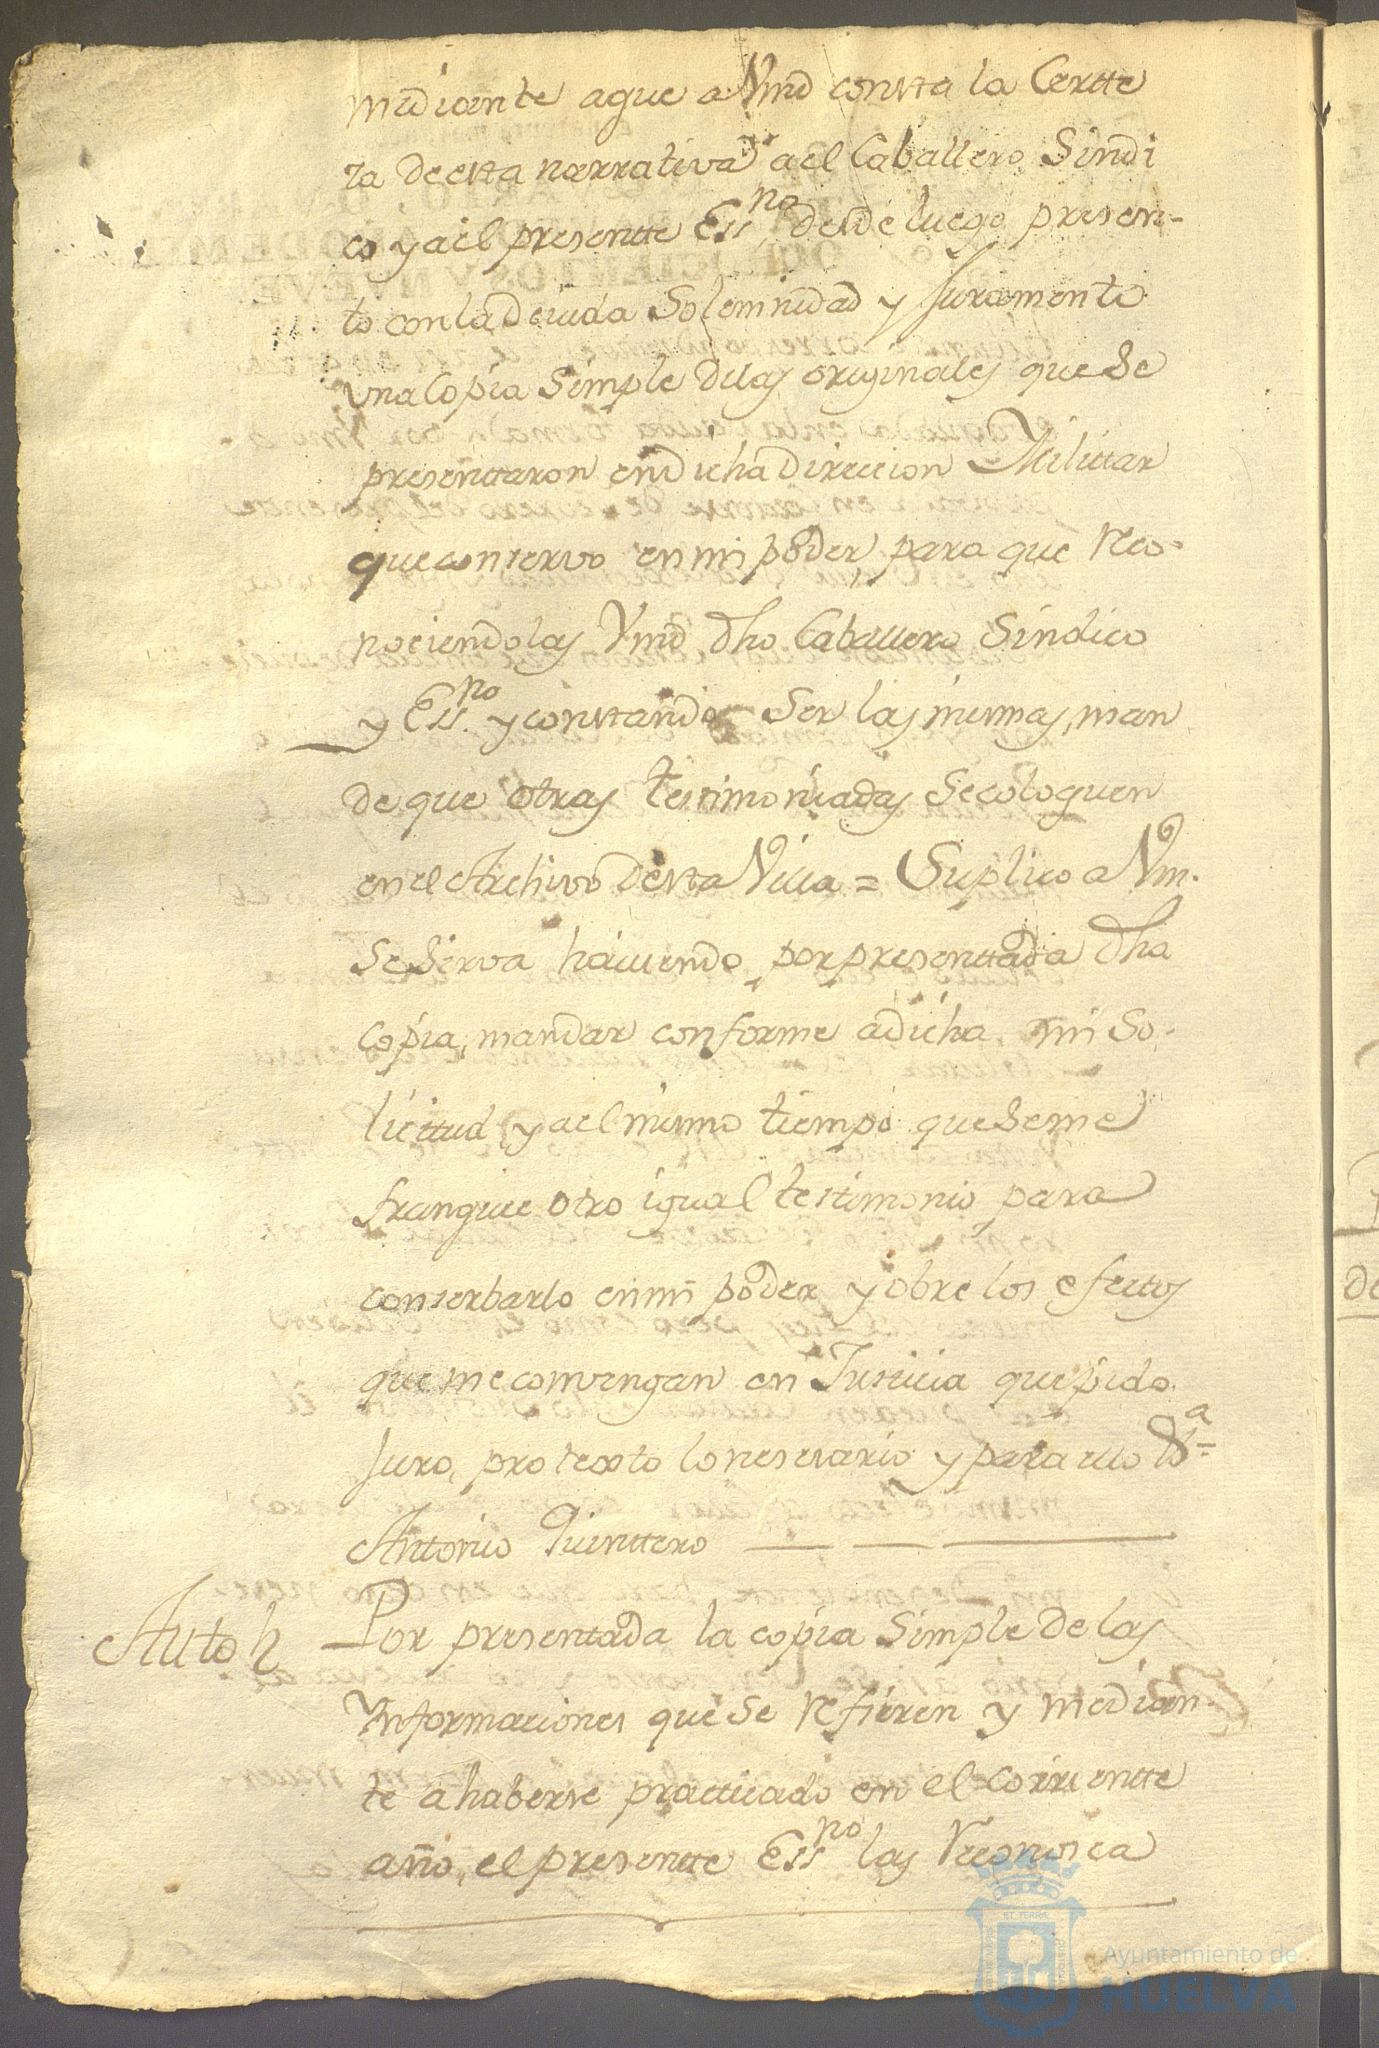 mediante aque a Vmd consta la Certte
za de esta narrativa a el Caballero Sindi
co y a el presentte Essno desde luego presen-
to con la devida Solemnidad y Juramento
una Copia Simple de las originales que se
presenttaron en dicha direccion Militar
que conservo en mi poder, para que reco-
nociendolas Vmd dho Caballero Sindico
y Essno y constando Ser las mismas, man
de que otras testimoniadas Se cologuen
en el Archivo desta Villa = Suplico a Vm.
Se Sirva haviendo por presenttada dha
copia, mandar conforme a dicha mi So-
licittud y a el mismo tiempo que se me
franquee otro igual testimonio para
conserbarlo en mi poder y obre los efectos
que me convengan en Justicia que pido
Juro, protexto lo nesesario y para ello Va=
Antonio Quinttero
Auto
Por presentada la copia Simple de las
Ynformaciones que se refieren y median
te a haberse practicado en el corrientte
año, el presentte Essno las reconosca
Ayuntamiento de
HUELVA